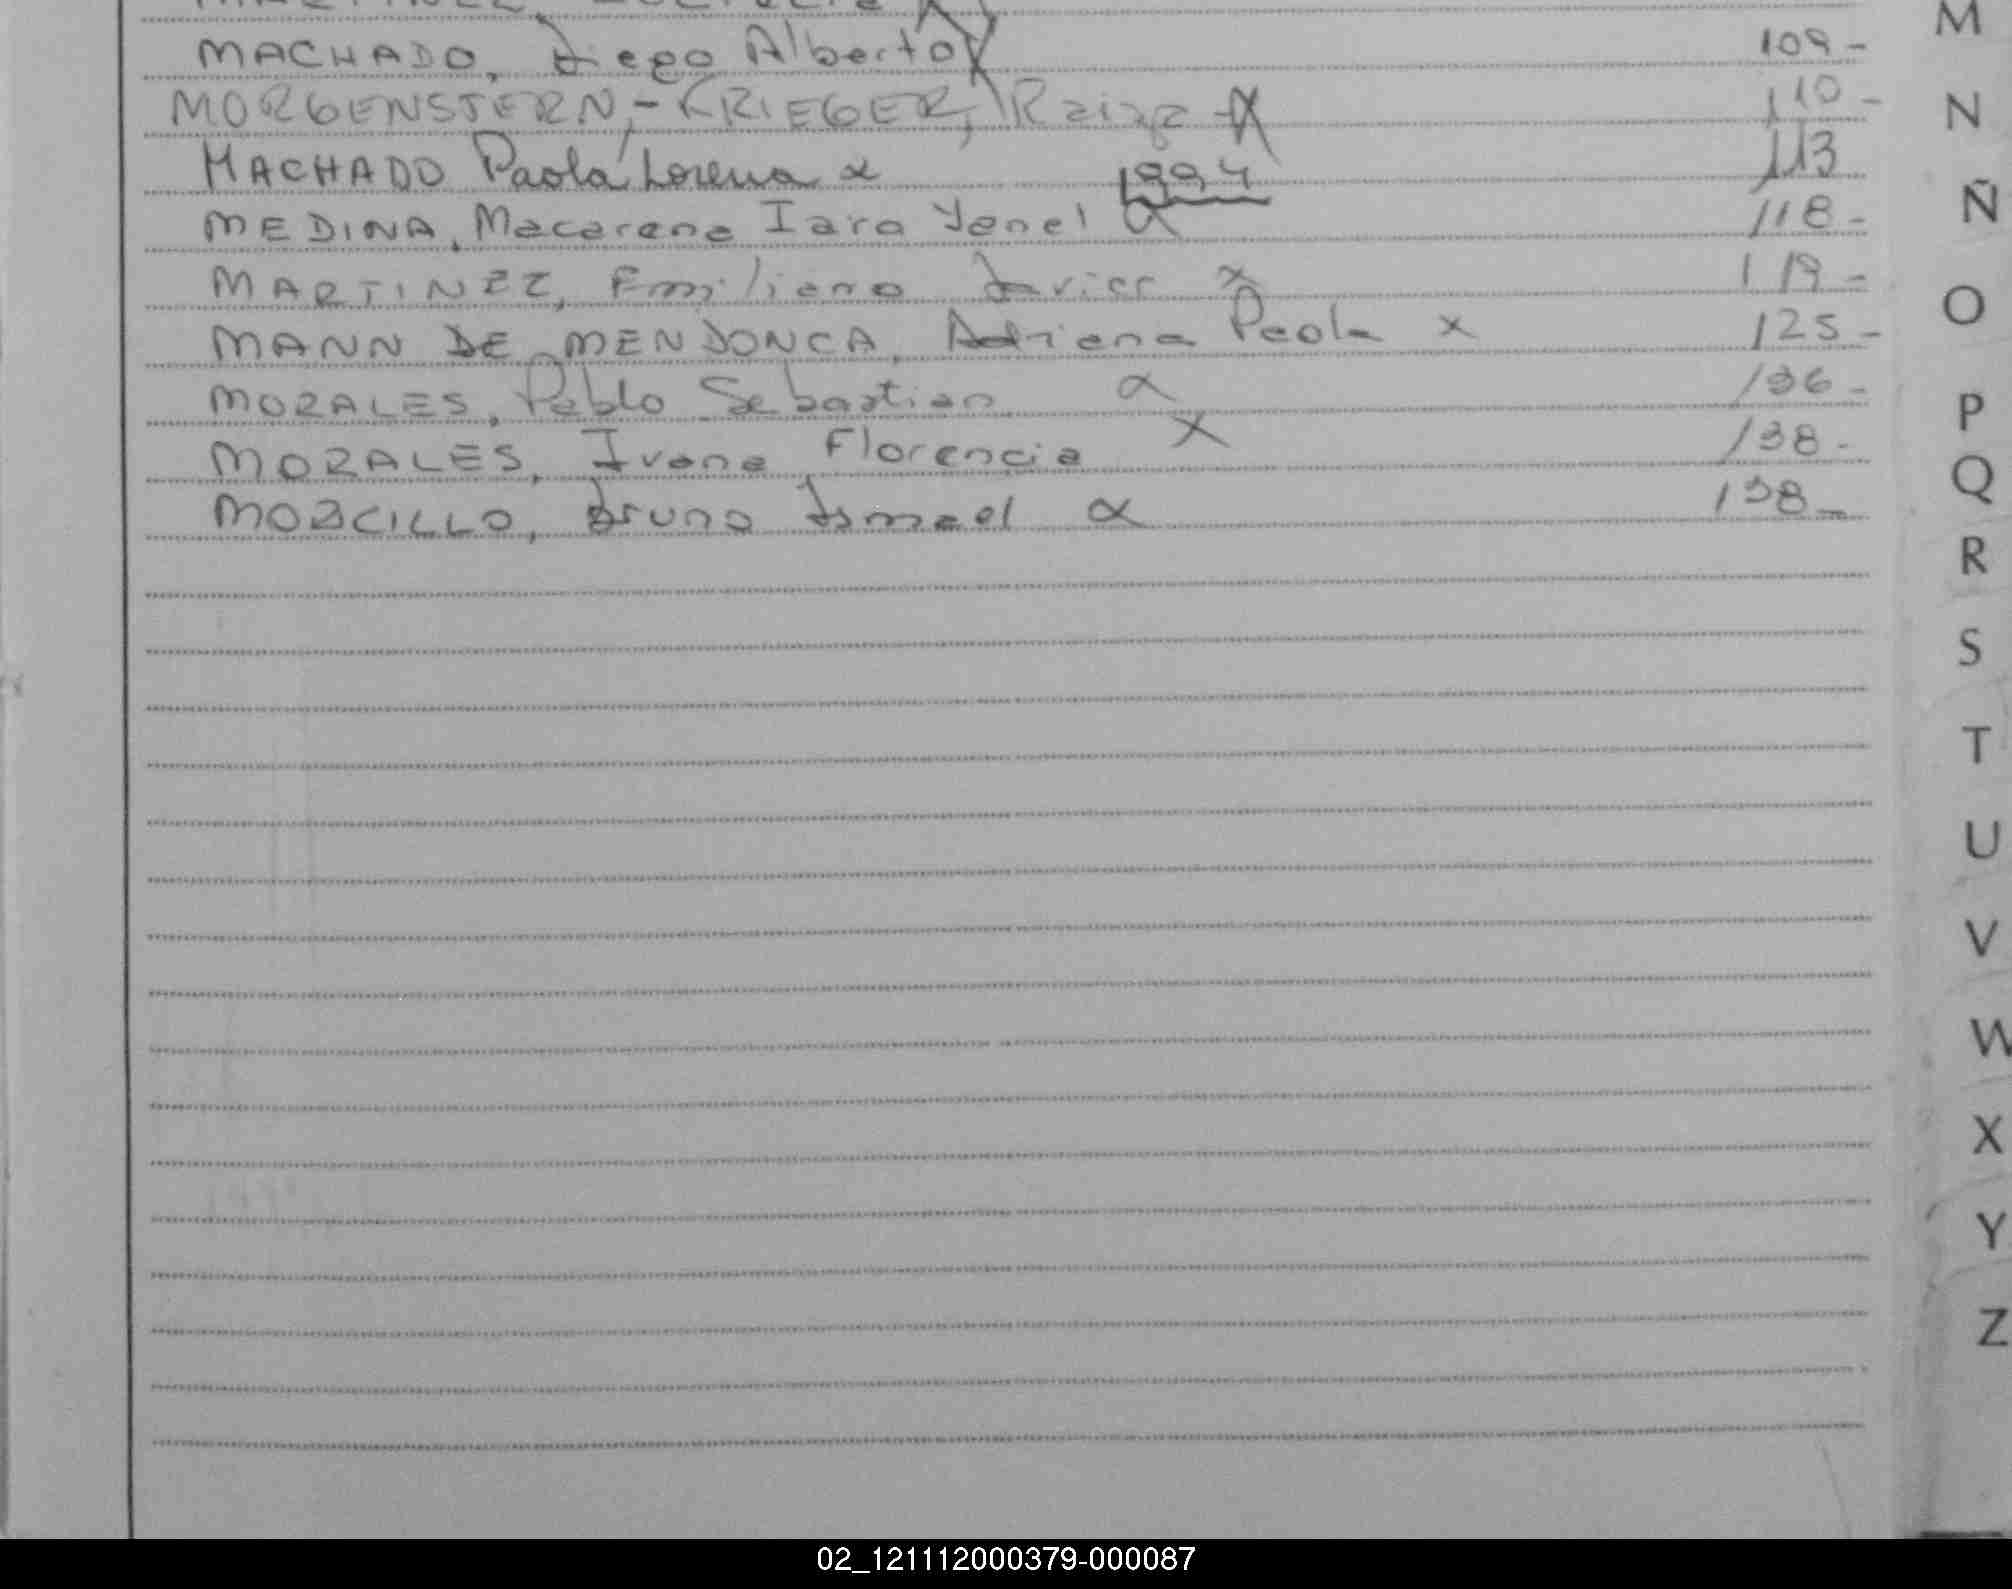 MARTINEZ,
MACHADO, Diego Alberto X 109-
MORGENSTERN,-KRIEGER, X 110-
MACHADO Paola Lorena x 1994 113
MEDINA, Macarena Iara Yanel x 118-
MARTINEZ, Emiliano Javier x 119-
MANN DE MENDONCA, Adriana Paola x 125-
MORALES, Pablo Sebastian x 136-
MORALES, Ivana Florencia X 138-
MORCILLO, Bruno Ismael x 138-
M
N
Ñ
O
P
Q
R
S
T
U
V
W
X
Y
Z
02_121112000379-000087